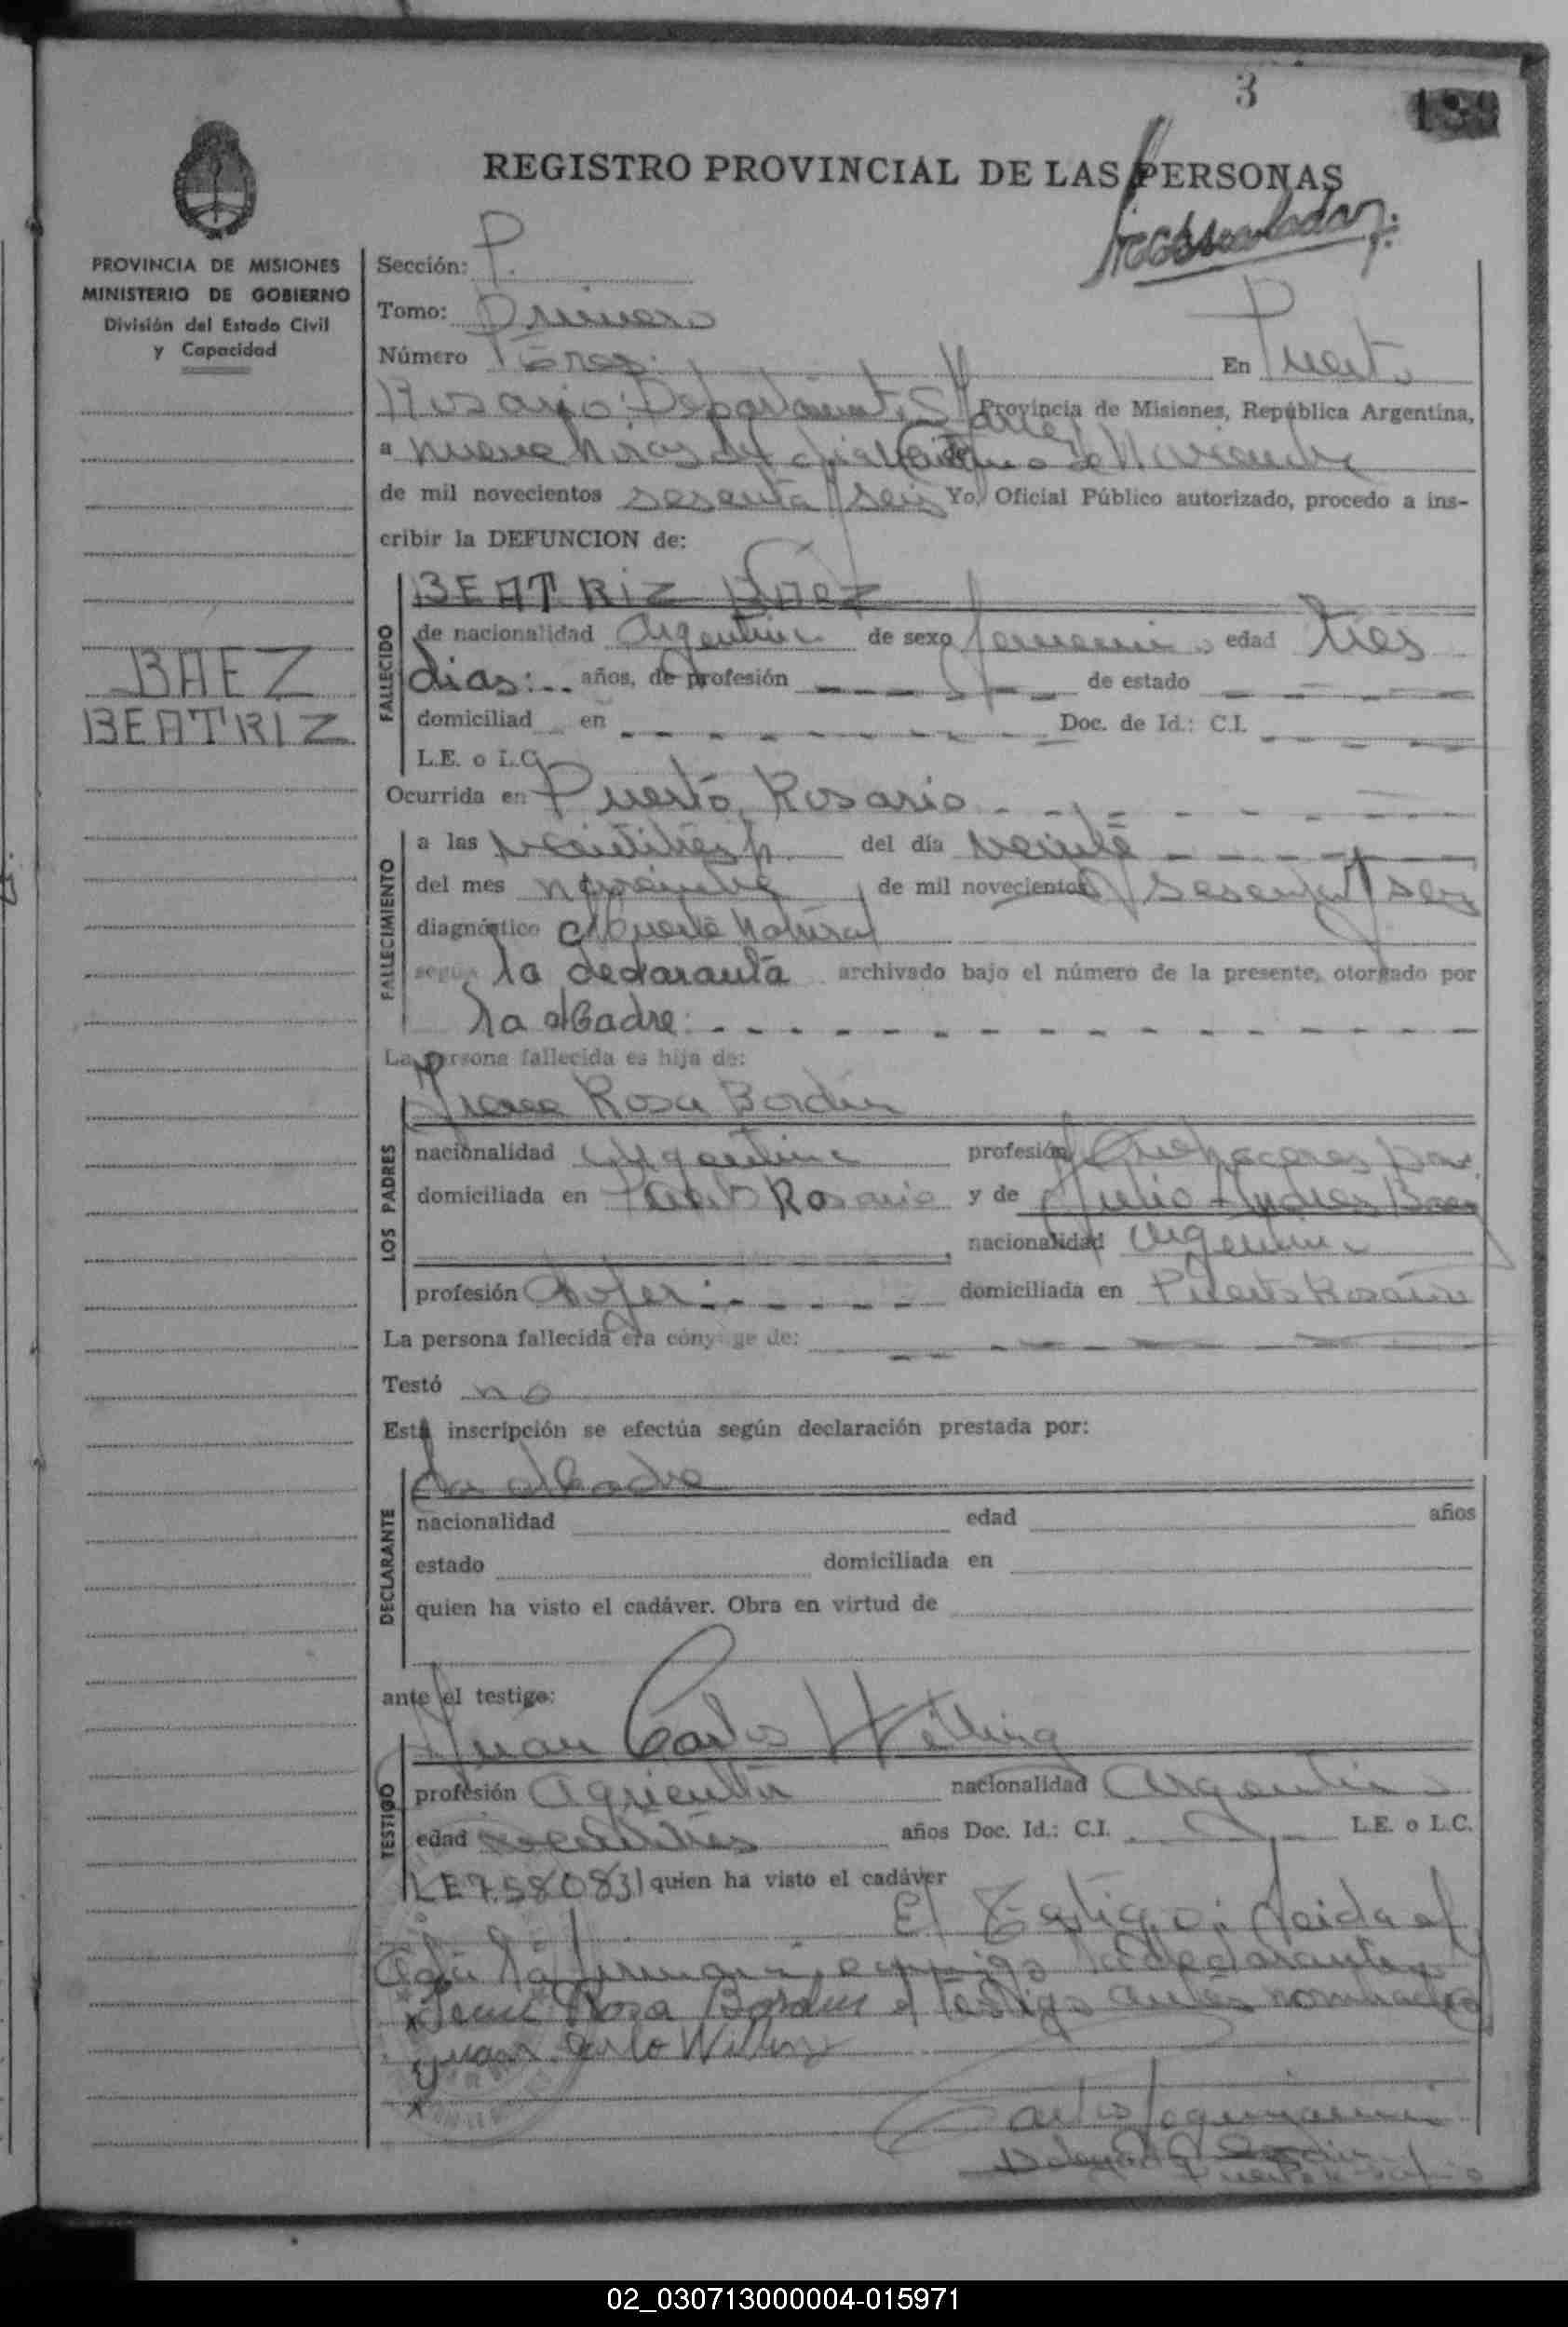 3
139
REGISTRO PROVINCIAL DE LAS PERSONAS
PROVINCIA DE MISIONES
MINISTERIO DE GOBIERNO
División del Estado Civil
y Capacidad
BAEZ
BEATRIZ
Sección: P.
Tomo: Primero
Número Tres. En Puerto
Rosario Departamento Provincia de Misiones, República Argentina,
a nueve horas del dia de Noviembre
de mil novecientos sesenta y seis Yo, Oficial Público autorizado, procedo a ins-
cribir la DEFUNCION de:
FALLECIDO
BEATRIZ BAEZ
de nacionalidad Argentina de sexo femenino edad tres
dias: años, de profesión de estado
domiciliad en Doc. de Id.: C.I.
L.E. o L.C.
Ocurrida en Puerto Rosario
FALLECIMIENTO
a las veintitres h. del día veinte
del mes noviembre de mil novecientos sesenta y seis
diagnóstico Muerte Natural
según la declaranta archivado bajo el número de la presente, otorgado por
la Madre.
La persona fallecida es hija de:
LOS PADRES
Rosa Bordin
nacionalidad Argentina profesión Quehaceres
domiciliada en Puerto Rosario y de Julio Andres Baez
nacionalidad Argentina
profesión Chofer domiciliada en Puerto Rosario
La persona fallecida era cónyuge de:
Testó no
Esta inscripción se efectúa según declaración prestada por:
DECLARANTE
La Madre
nacionalidad edad años
estado domiciliada en
quien ha visto el cadáver. Obra en virtud de
ante el testigo:
TESTIGO
Juan Carlos Willing
profesión Agricultor nacionalidad Argentino
edad años Doc. Id.: C.I. L.E. o L.C.
LE7.580831 quien ha visto el cadáver
El Testigo: Leida el
Acta la conmigo la declaranta
Rosa Bordin y testigo antes nombrado
Juan Carlo Willing
02_030713000004-015971